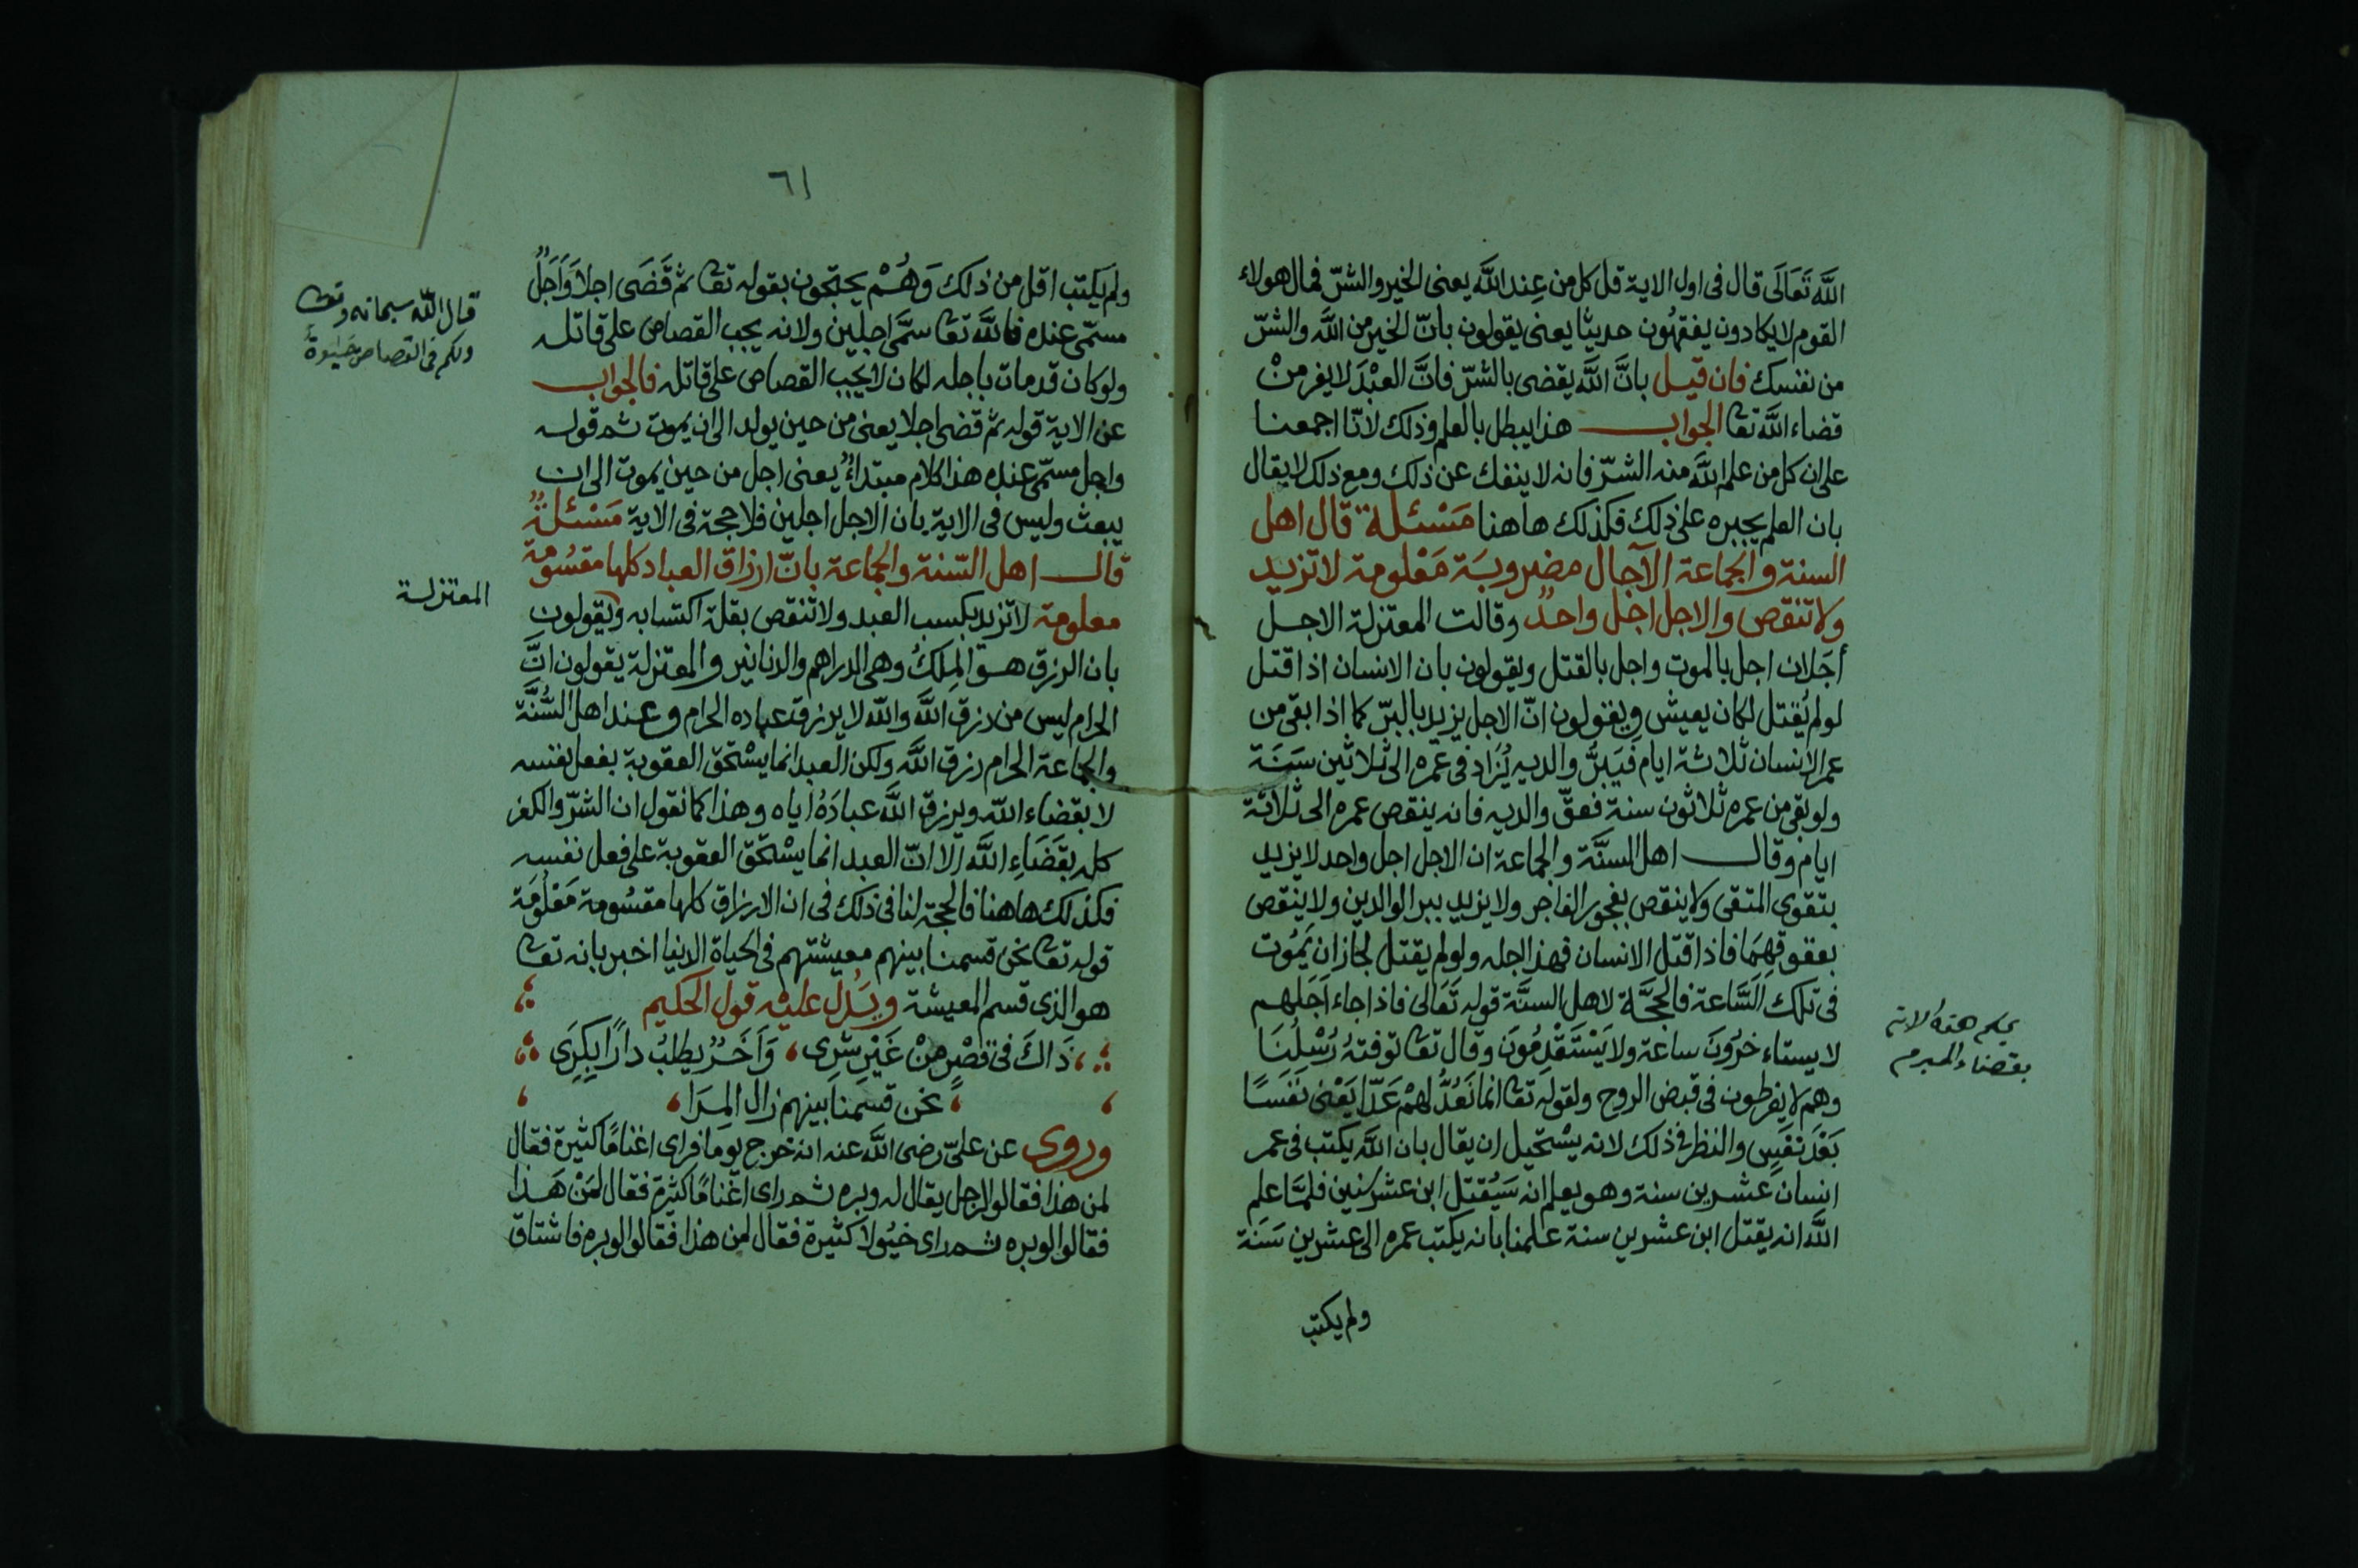 اللَّه تَعَالَى قال فى اول الاية قل كل من عِند اللَّه يعنى الخير والشرّ فمال هولاء
القوم لا يكادون يفقهُون حديثا يعنى يقولون بانّ الخير من اللَّه والشرّ
من نفسك فان قيل بانَّ اللَّه يقضى بالشرّ فانَّ العبْدَ لا يفر منْ
قضاء اللَّه تعا الجواب هذا يبطل بالعلم وذلك لانّا اجمعنا
على ان كل من علم اللَّه منه الشرّ فانه لا ينفك عن ذلك ومع ذلك لا يقال
بان العلم يجبره على ذلك فكذلك هاهنا مَسْئلة قال اهل
السنة والجماعة الآجال مضروبَة مَعْلومة لا تزيد
ولا تنقص والاجل اجل واحدٌ وقالت المعتزلة الاجل
أجَلان اجل بالموت واجل بالقتل ويقولون بان الانسان اذا قتل
لو لم يُقتل لكان يعيش ويقولون انّ الاجل يزيد بالبرّ كما اذا بقى من
عمر الانسان ثلاثة ايام فَيَبَرُّ والديه يُزَاد فى عمره الى ثلاثين سَنَة
ولو بقى من عمره ثلاثون سنة فعقّ والديه فانه ينقص عمره الى ثلاثة
ايام وقال اهل السنَّة والجماعة ان الاجل اجل واحد لا يزيد
بتقوى المتقى ولا ينقص بفجور الفاجر ولا يزيد ببر الوالدين ولا ينقص
بعقوقهِمَا فاذا قتل الانسان فهذا اجله ولو لم يقتل لجاز ان يَمُوت
فى تلك السَّاعة فالحجَّة لاهل السنَّة قوله تَعَالى فاذا جاء اَجَلهم
لا يستاءخرُونَ ساعة ولا يَسْتَقْدِمُونَ وقال تعا توفتهُ رُسُلُنَا
وهم لا يفرطون فى قبض الروح ولقوله تعا انما نَعُدُّ لهُمْ عَدّا يَعْنى نَفَسًا
بَعْدَ نَفَسٍ والنظر فى ذلك لانه يسْتحيل ان يقال بان اللَّه يكتب فى عمر
انسان عشرين سنة وهو يعلم انه سَيُقتل ابن عشر سنين فلمَّا علم
اللَّه انه يقتل ابن عشرين سنة علمنا بانه يكتب عمره الى عشرين سَنَة
ولم يكتب
يحكم هذه الاية
بقضاء المبرم
٦١
ولم يكتب اقل من ذلك وَهُمْ يحتجون بقوله تعا ثم قَضَى اجلا وَاَجَلٌ
مسمّى عنده فاللَّه تعا سمَّى اجلين ولانه يجب القصاص على قاتله
ولو كان قد مات باجله لكان لا يجب القصاص على قاتله فالجواب
عن الاية قوله ثم قضى اجلا يعنى من حين يولد الى ان يموت ثم قوله
واجل مسمّى عنده هذا كلام مبتداءٌ يعنى اجل من حين يموت الى ان
يبعث وليس فى الاية بان الاجل اجلين فلا حجة فى الاية مَسْئلةٌ
قال اهل السّنة والجماعة بانّ ارزاق العباد كلها مقسُومة
معلومة لا تزيد بكسب العبد ولا تنقص بقلة اكتسابه ويقولون
بان الرزق هو المِلكُ وهى الدراهم والدنانير والمعتزلة يقولون انَّ
الحرام ليس من رزق اللَّه واللّه لا يرزق عباده الحرام وعند اهل السُّنَّة
والجماعة الحرام رزق اللَّه ولكن العبد انما يسْتحق العقوبة بفعل نفسه
لا بقضاء اللّه ويرزق اللَّه عبادَهُ اياه وهذا كما نقول ان الشرّ والكفر
كله بقَضَاءِ اللَّه الا انّ العبد انما يسْتحق العقوبة على فعل نفسه
فكذلك هاهنا فالحجة لنا فى ذلك فى ان الارزاق كلها مقسُومة مَعْلُومَة
قوله تعا نحن قسمنا بينهم معيشتهم فى الحياة الدنيا اخبر بانه تعا
هو الذى قسم المعيشة ويَدُل عليْه قول الحكيم
ذَاكَ فى قصْرٍ مِنْ غَيْرِ شِرًى وَآخَرُ يطلبُ دارًا بكِرَى
نحن قسمنا بينهم زال المِرَا
وروى عن علىّ رضى اللَّه عنه انه خرج يوما فراى اغنامًا كثيرة فقال
لمن هذا فقالوا لرجل يقال له وبره ثم راى اغنامًا كثيرة فقال لمَنْ هَذا
فقالوا لوبره ثم راى خيُولا كثيرة فقال لمن هذا فقالوا لوبره فاشتاق
قال اللّه سبحانه وتعا
ولكم فى القصاص حَيٰوةٌ
المعتزلة